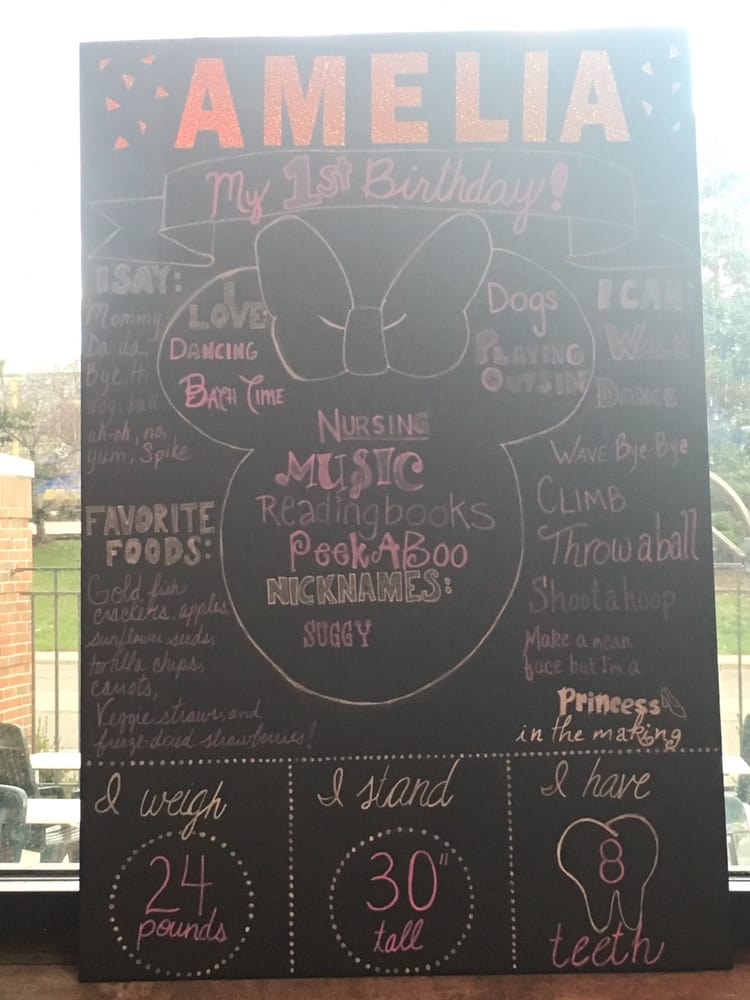 AMELIA
My 1st Birthday!
I SAY:
Mommy
Da-da,
Bye, Hi
dog, ball
uh-oh, no,
yum, Spike
FAVORITE
FOODS:
Gold fish
crackers, apples,
sunflower seeds,
tortilla chips,
carrots,
Veggie straws, and
freeze-dried strawberries!
I
LOVE
DANCING
BATH TIME
Dogs
PLAYING
OUTSIDE
NURSING
MUSIC
Reading books
PEEKABOO
NICKNAMES:
SUGGY
I CAN:
WALK
DANCE
WAVE Bye-Bye
CLIMB
Throw a ball
Shoot a hoop
Make a mean
face but I'm a
Princess
in the making
I weigh
24
pounds
I stand
30"
tall
I have
8
teeth